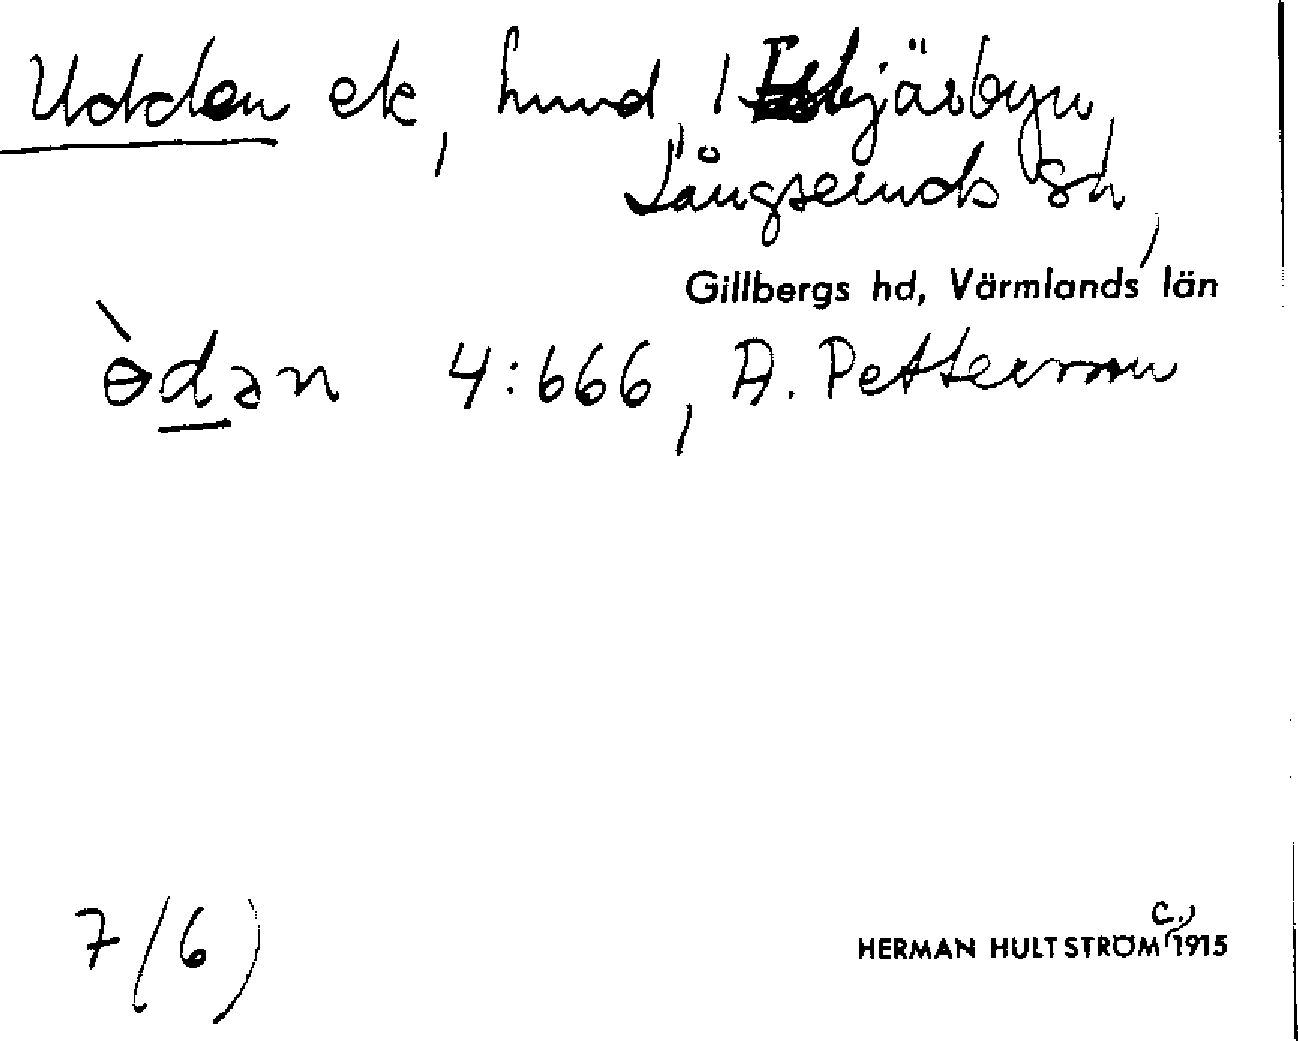 Udden ek, hmd, i Eskjärbyn,
Långseruds sn,
Gillbergs hd, Värmlands län
ɵ̀dən 4:666, A. Petterson
7/6)
c.
HERMAN HULTSTRÖM 1915